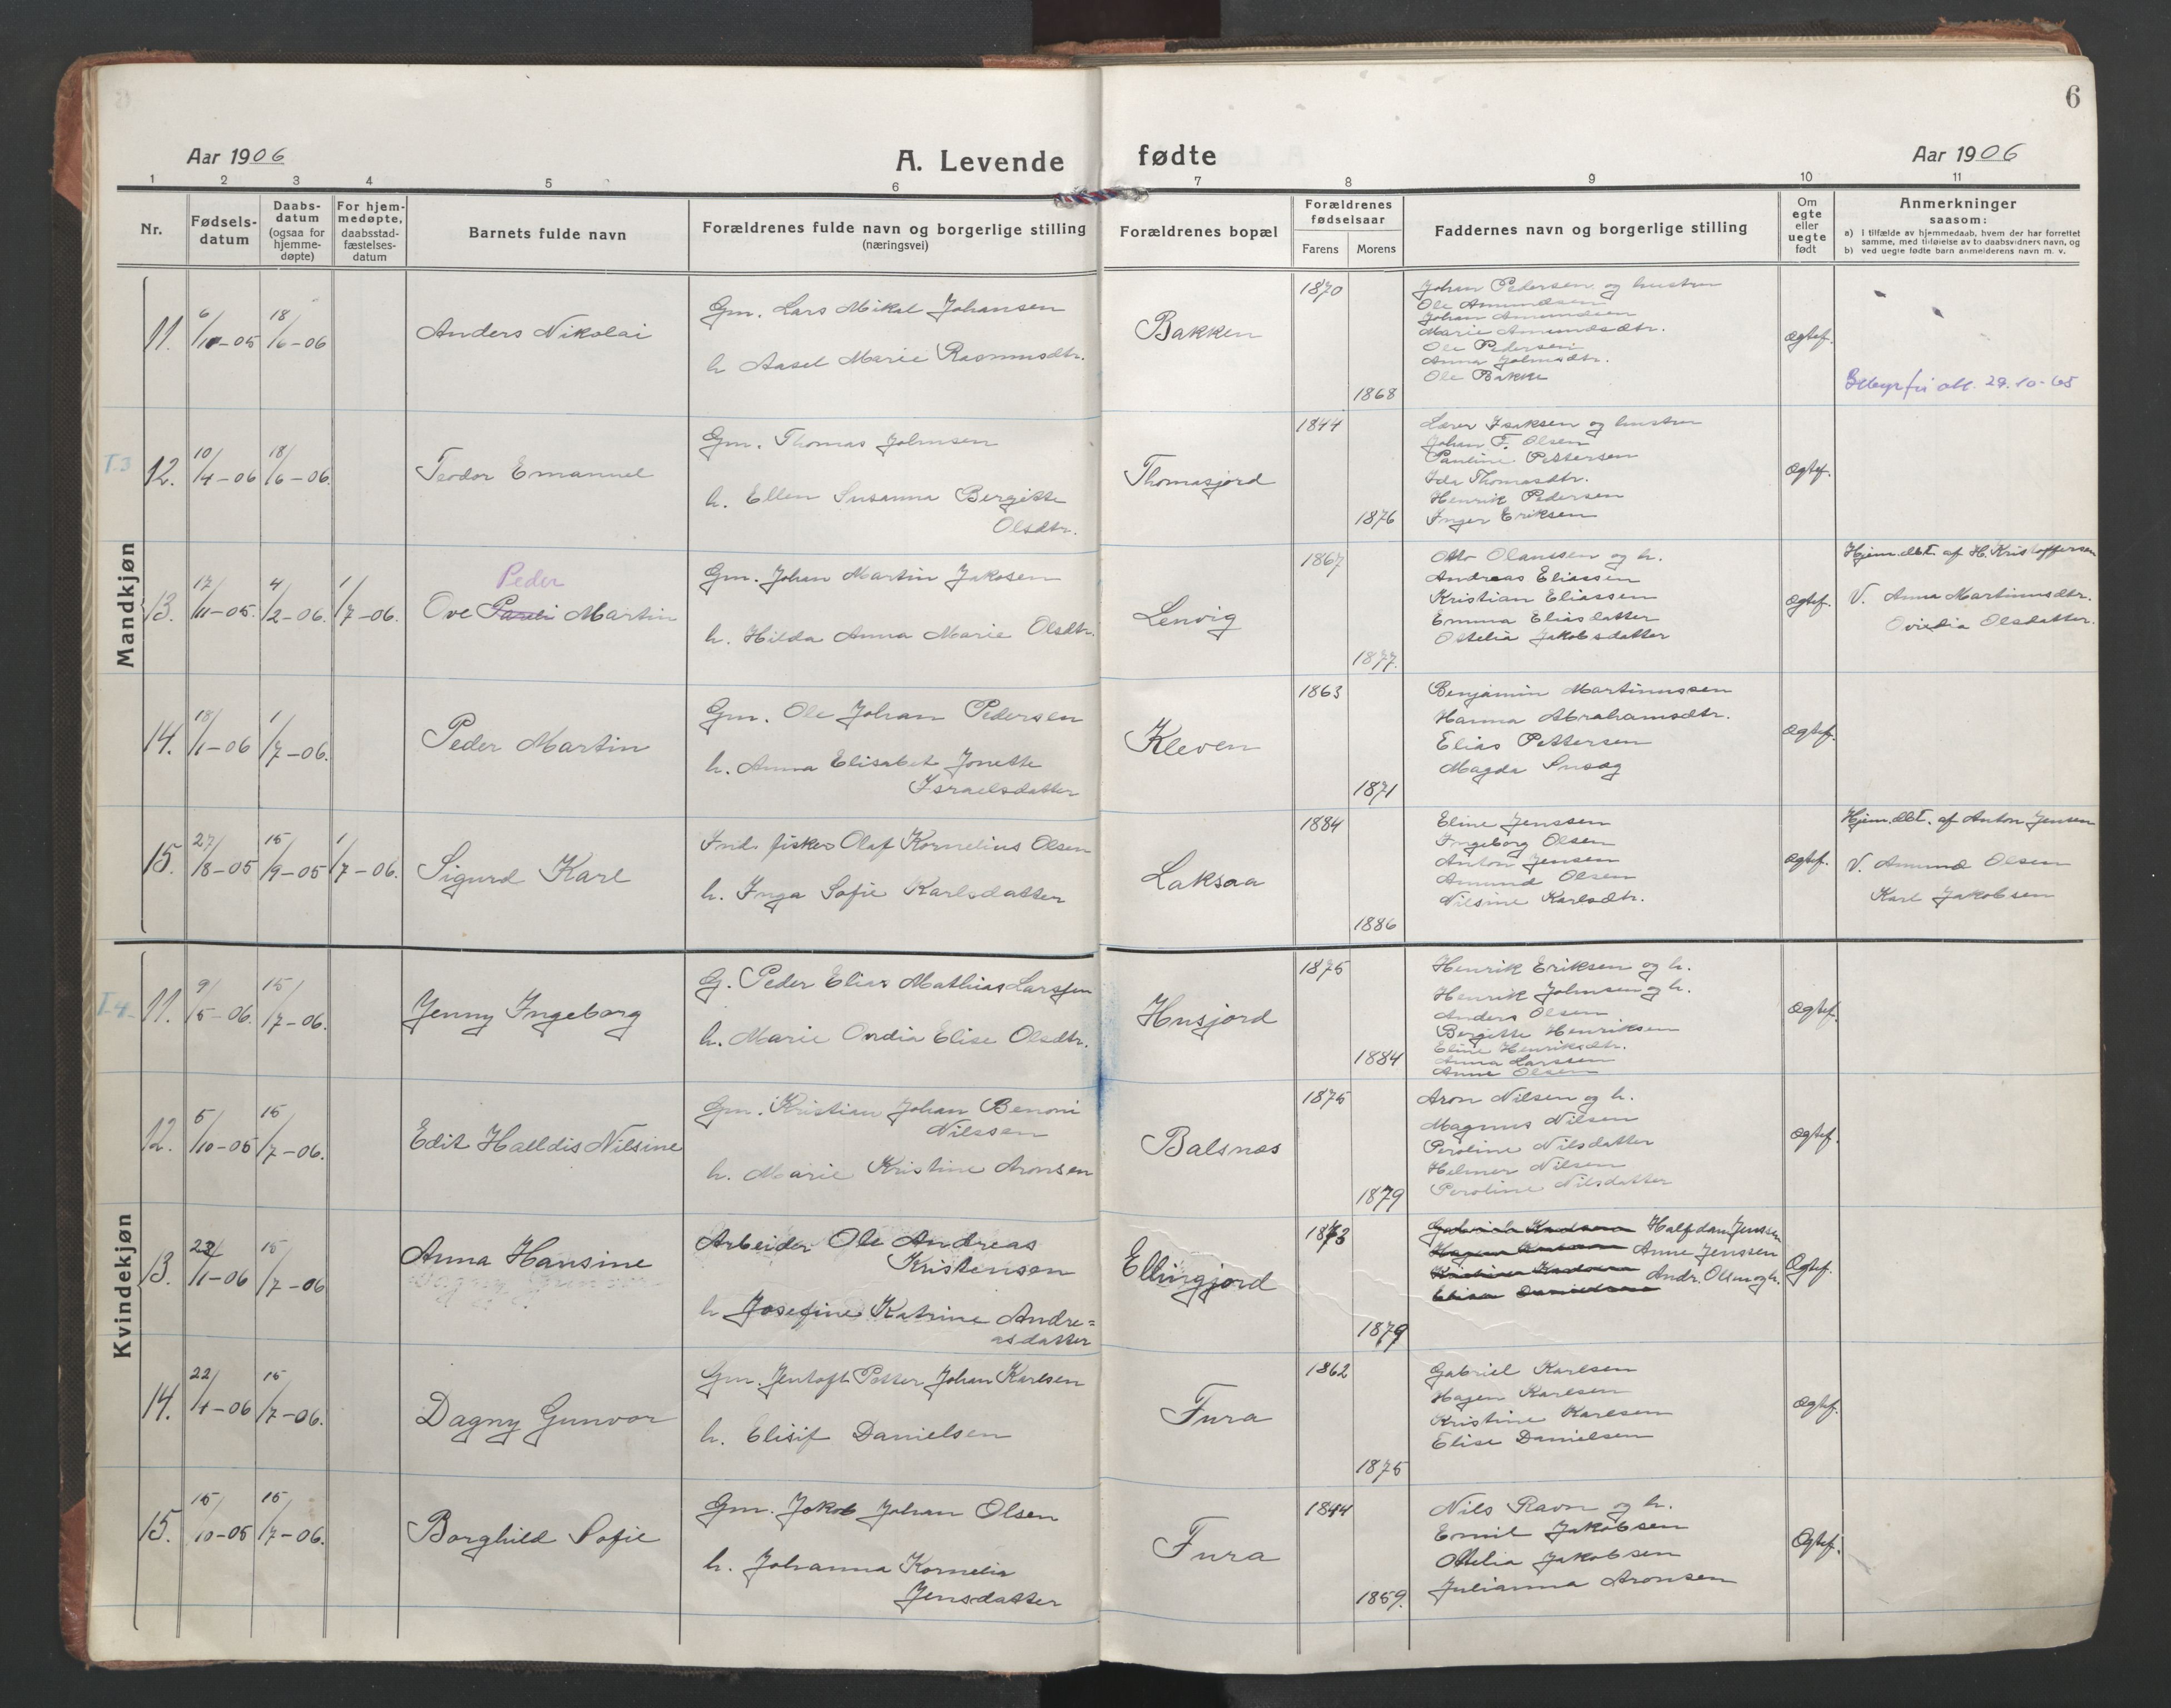 6
Aar 1906
A. Levende fødte
Aar 1906
1 2 3 4 5 6 7 8 9 10 11
Nr.
Fødsels-
datum
Daabs-
datum
(ogsaa for
hjemme-
døpte)
For hjem-
medøpte,
daabsstad-
fæstelses-
datum
Barnets fulde navn
Forældrenes fulde navn og borgerlige stilling
(næringsvei)
Forældrenes bopæl
Forældrenes
fødselsaar
Farens
Morens
Faddernes navn og borgerlige stilling
Om
egte
eller
uegte
født
Anmerkninger
saasom:
a) I tilfælde av hjemmedaab, hvem der har forrettet
samme, med tilføielse av to daabsvidners navn, og
b) ved uegte fødte barn anmelderens navn m. v.
Mandkjøn
11. 6/10-05 18/6-06
Anders Nikolai
Gm. Lars Mikal Johansen
h Aasel Marie Rasmusdtr.
Bakken
1870
1868
Johan Pedersen og hustru
Ole Amundsen
Johan Amundsen
Marie Amundsdtr.
Ole Pedersen
Anna Johnsdtr.
Ole Bakke
ægtef.
29.10-65
T.3
12. 10/4-06 18/6-06.
Teodor Emanuel
Gm. Thomas Johnsen
h. Ellen Susanna Bergitte
Olsdtr.
Thomasjord
1844
1876
Lærer Isaksen og hustru
Johan F. Olsen
Pauline Pettersen
Ida Thomasdtr.
Henrik Pedersen
Inger Eriksen
ægtef.
13. 17/11-05 4/2-06. 1/7-06.
Peder
Ove Martin
Gm. Johan Martin Jakosen
h. Hilda Anna Marie Olsdtr.
Lenvig
1867
1877.
Otto Olaussen og h.
Andreas Eliassen
Kristian Eliassen
Emma Eliasdatter
Ottelia Jakobsdatter
ægtef.
Hjem.dbt. af H. Kristoffersen
V. Anna Martinusdtr.
Olsdatter.
14. 18/1-06 1/7-06.
Peder Martin
Gm. Ole Johan Pedersen
h. Anna Elisabet Jonette
Israelsdatter
Kleven
1863
1871
Benjamin Martinussen
Hanna Abrahamsdtr.
Elias Pettersen
Magda Snsag
ægtef.
15. 27/8-05 15/9-05 1/7-06.
Sigurd Karl
Ind. fisker Olaf Kornelius Olsen
h. Inga Sofie Karlsdatter
Laksaa
1884
1886
Eline Jenssen
Ingeborg Olsen
Anton Jensen
Amund Olsen
Nilsine Karlsdtr.
ægtef.
Hjem.dbt. af Anton Jensen
V. Amund Olsen
Karl Jakobsen
Kvindekjøn
T.4.
11. 9/5-06. 15/7-06.
Jenny Ingeborg
G. Peder Elias Mathias Larssen
h. Marie Ovidia Elise Olsdtr.
Husjord
1875
1884
Henrik Eriksen og h.
Henrik Johnsen og h.
Anders Olsen
Bergitte Henriksen
Eline Henriksdtr.
Anna Larssen
Anne Olsen
ægtef.
12. 5/10-05 15/7-06.
Edit Halldis Nilsine
Gm. Kristian Johan Benoni
Nilssen
h. Marie Kristine Aronsen
Balsnæs
1875
1879
Aron Nilsen og h.
Magnus Nilsen
Peroline Nilsdatter
Helmer Nilsen
Peroline Nilsdatter
ægtef.
13. 23/1-06 15/7-06
Anna Hansine
Arbeider Ole Andreas
Kristensen
h Josefine Katrine Andre=
asdatter
Ellingjord
1873
1879
Halfdan Jenssen
Anne Jenssen
Andr. Olsen og h.
Ægtef.
14. 22/4-06 15/7-06.
Dagny Gunvor
Gm. Jentoft Petter Johan Karlsen
h. Elisif Danielsen
Fura
1862
1875
Gabriel Karlsen
Hagen Karlsen
Kristine Karlsen
Elise Danielsen
ægtef.
15. 15/10-05 15/7-06.
Borghild Sofie
Gm. Jakob Johan Olsen
h. Johanna Kornelia
Jensdatter
Fura
1844
1859.
Nils Ravn og h.
Emil Jakobsen
Otelia Jakobsen
Julianna Aronsen
Ægtef.